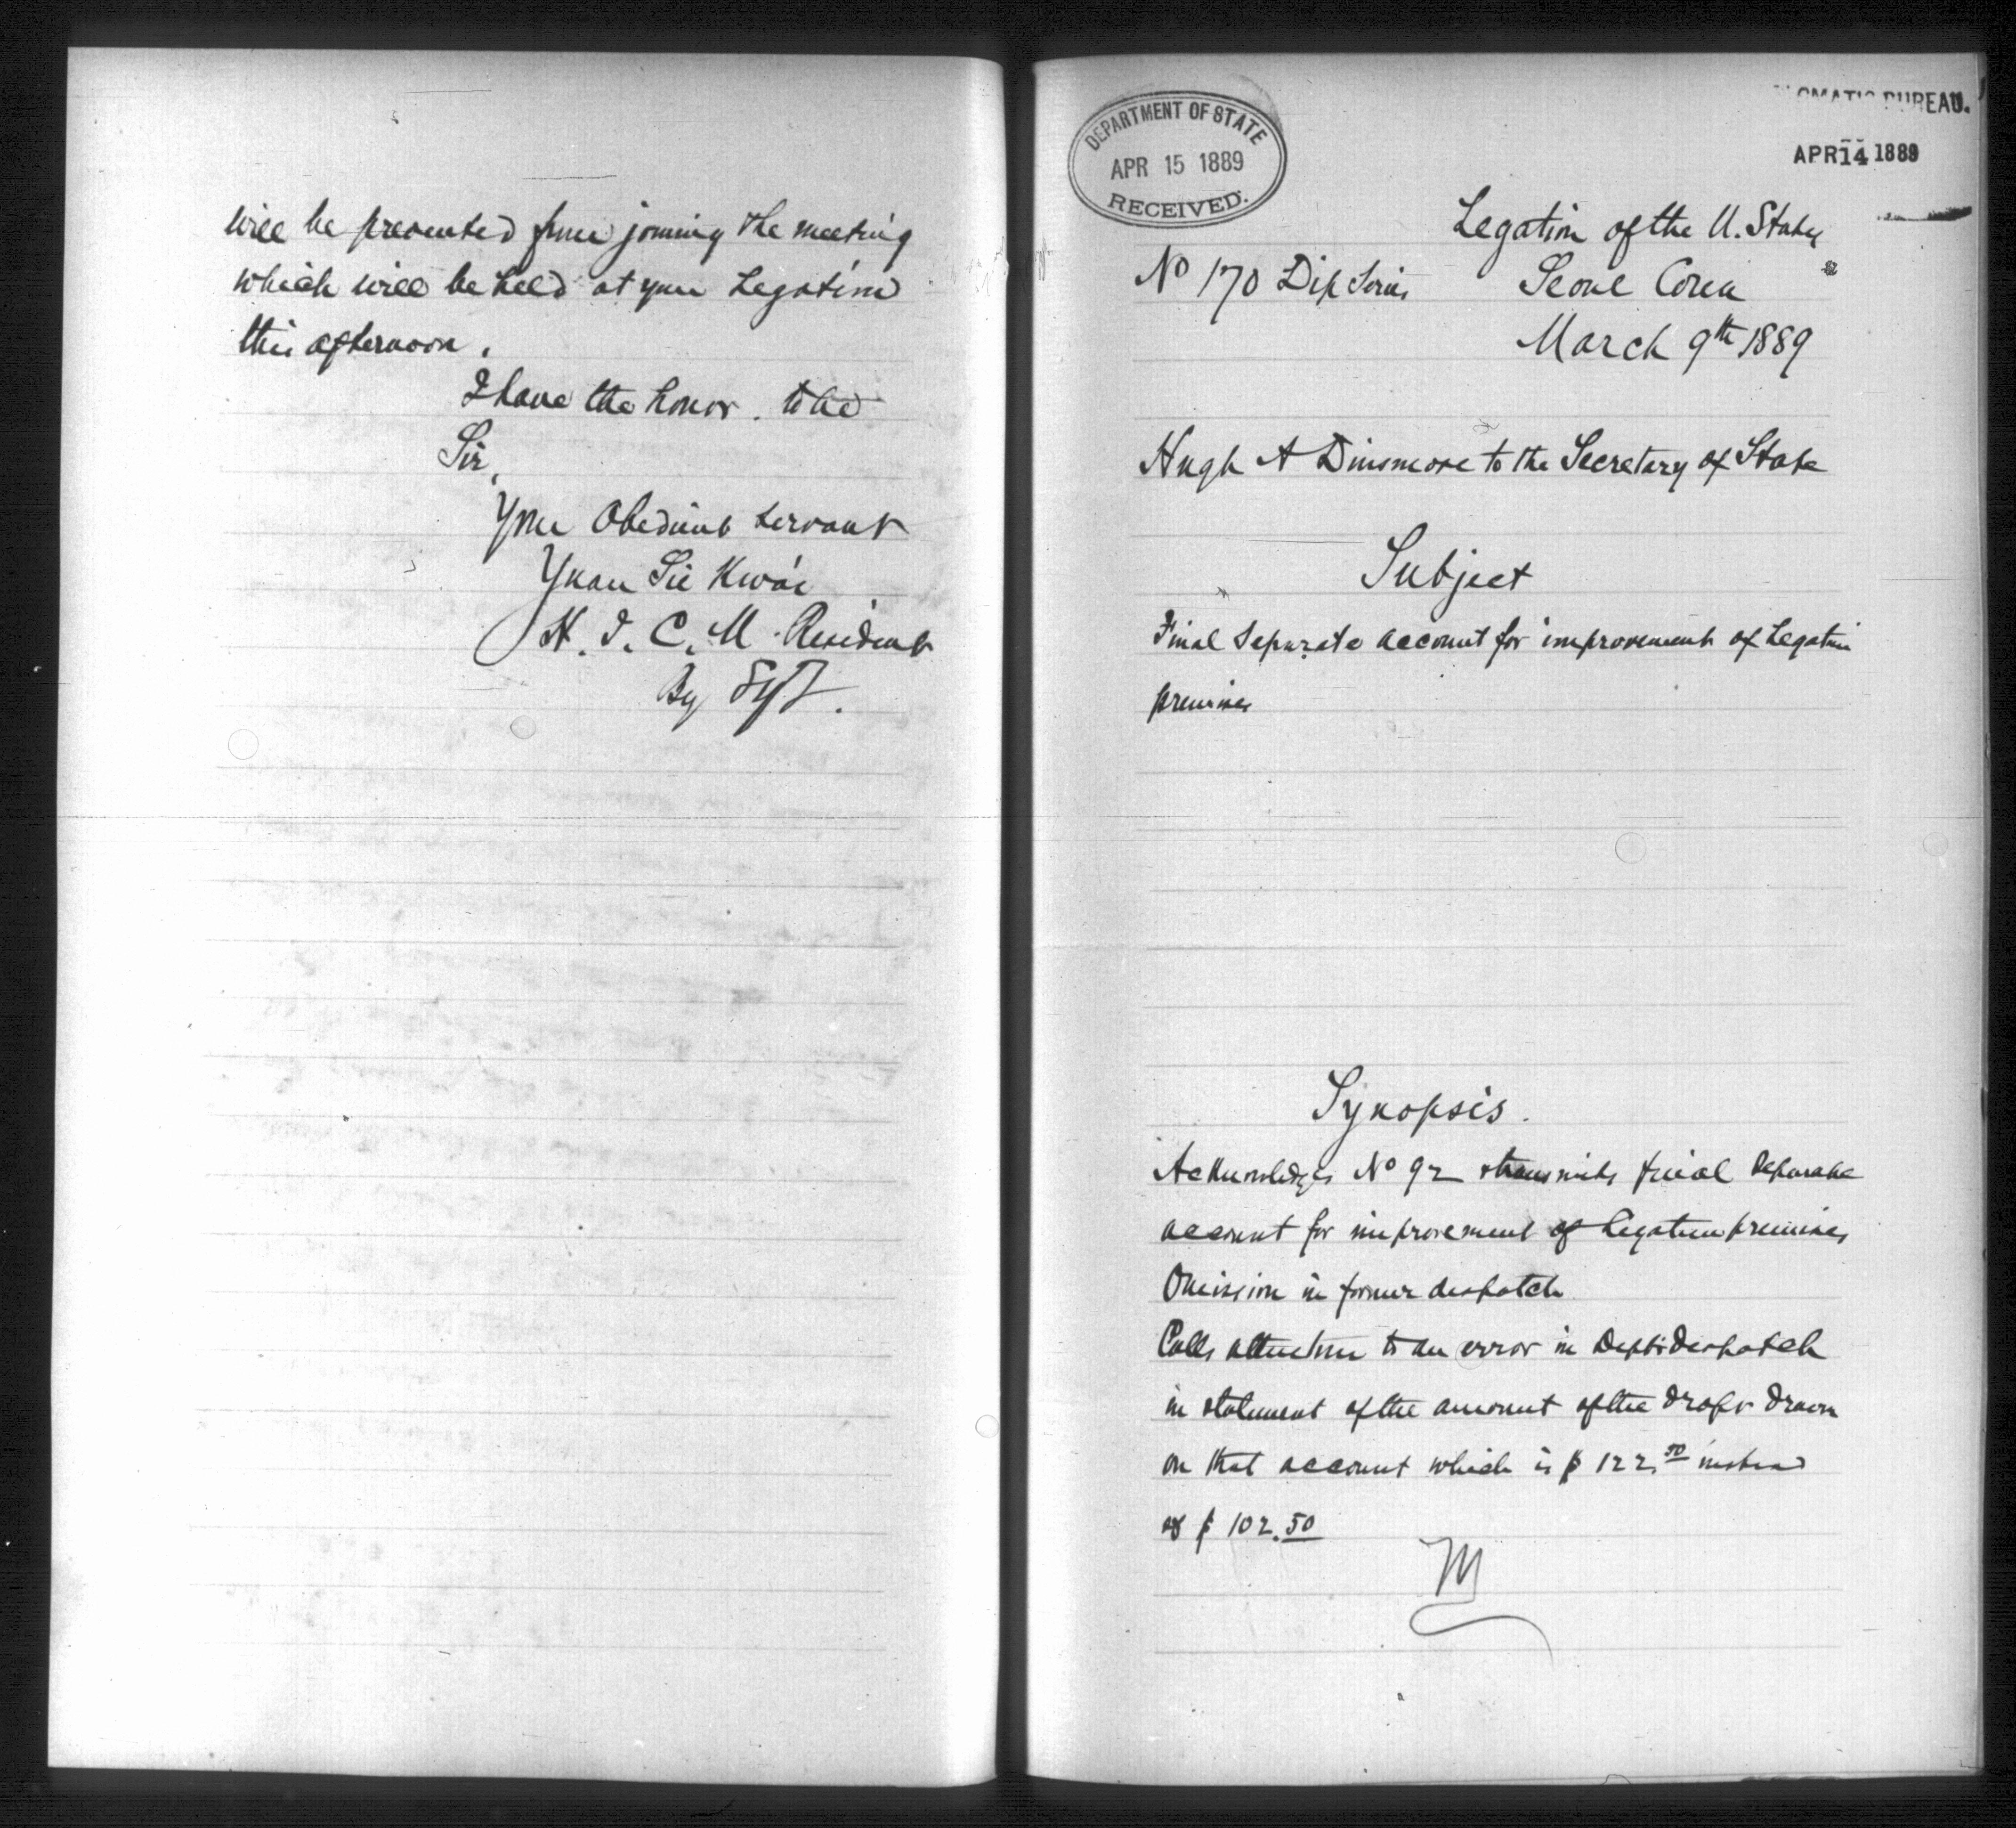 will be prevented from joining the meeting
which will be held at your Legation
this afternoon.
I have the honor. to be
Sir,
Your Obedient servant
Yuan Sie Kwai
H. I. C. M. Resident
By
DEPARTMENT OF STATE
APR 15 1889
RECEIVED.
BUREAU.
APR 14 1889
Legation of the U. States
No 170 Dip Series
Seoul Corea
March 9th 1889
Hugh A Dinsmore to the Secretary of State
Subject
Final separate account for improvement of Legation
premises
Synopsis.
Acknowledges No 92 transmits final separate
account for improvement of Legation premises
Omission in former despatch
Calls attention to an error in Depts despatch
in statement of the amount of the draft drawn
on that account which is $ 122.50 instead
of $ 102.50
M